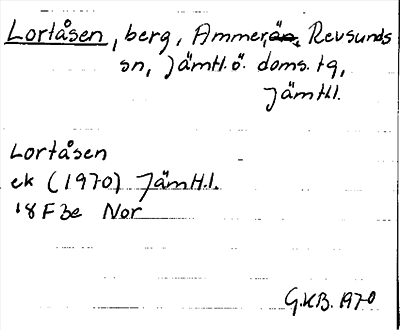 Lortåsen, berg, Ammer, Revsunds
sn, Jämtl. ö. doms. tg,
Jämtl.
Lortåsen
ek (1970) Jämtl.
18F3e Nor
G.KB. 1970